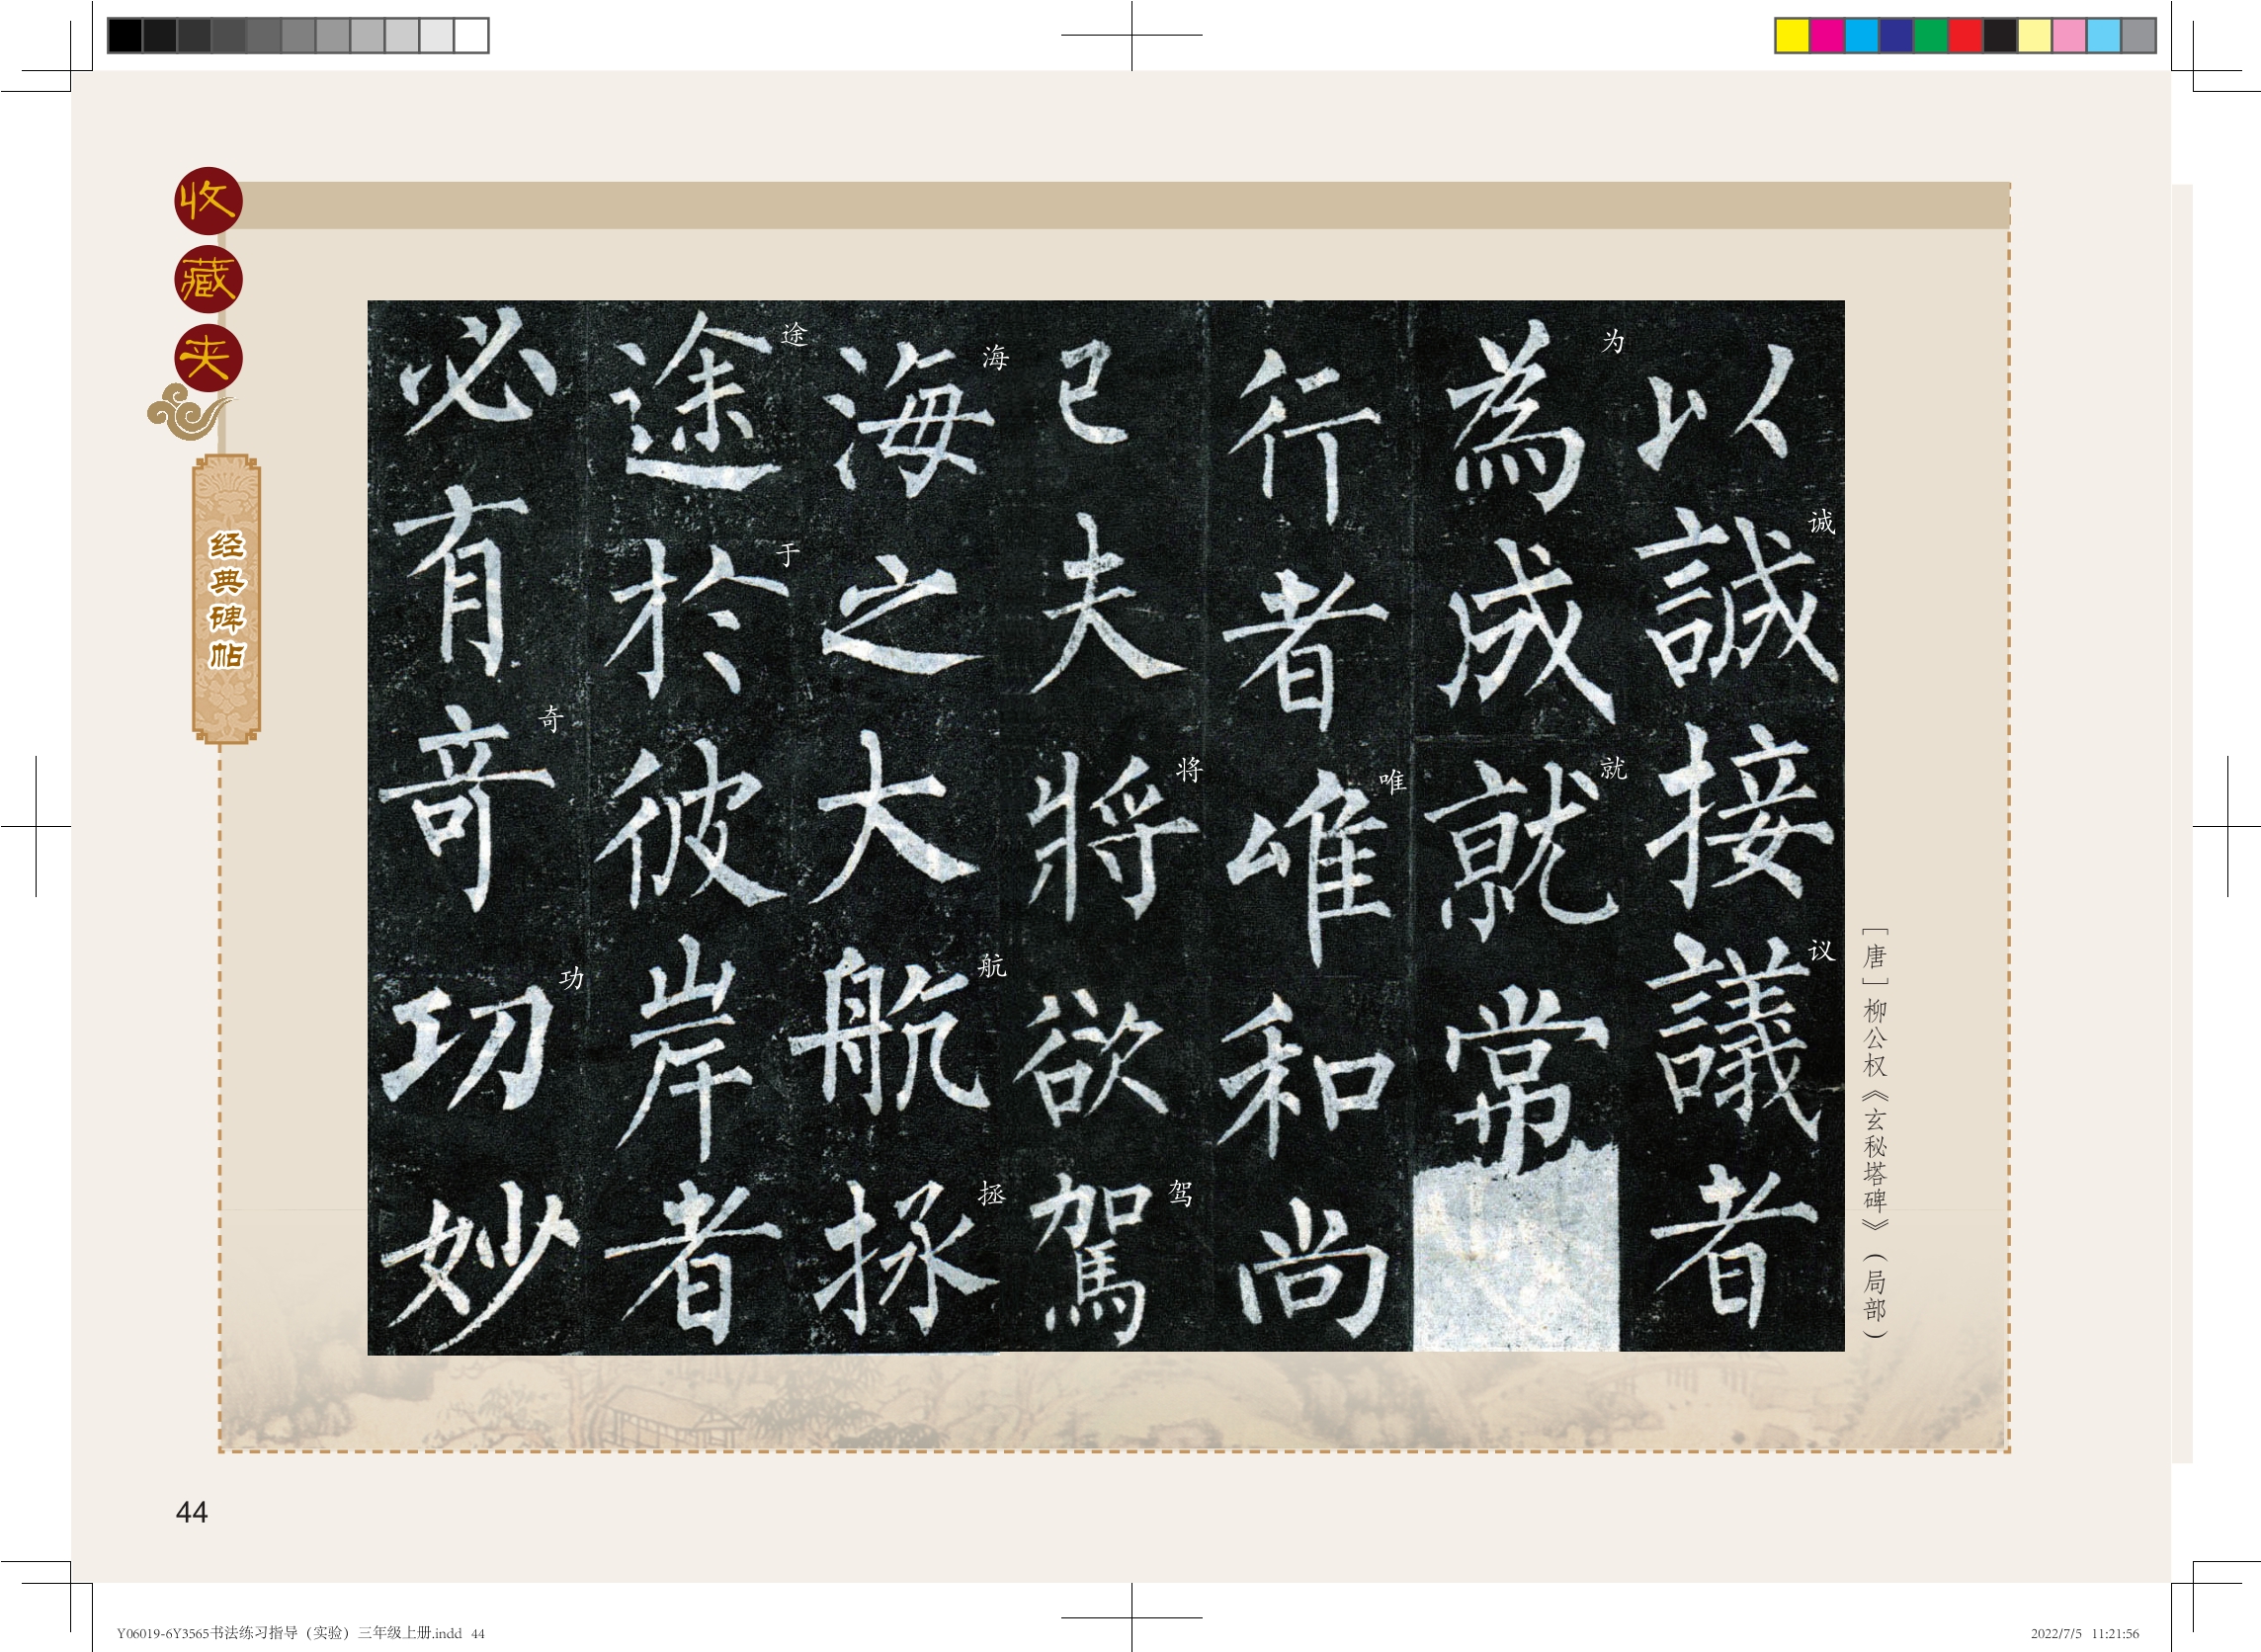 收藏夹
经典碑帖
以誠接議者
為成就常
行者唯和尚
已夫將欲駕
海之大航拯
途於彼岸者
必有竒功妙
诚
议
为
就
唯
将
驾
海
航
拯
途
于
奇
功
［唐］柳公权《玄秘塔碑》（局部）
44
Y06019-6Y3565书法练习指导（实验）三年级上册.indd 44
2022/7/5 11:21:56